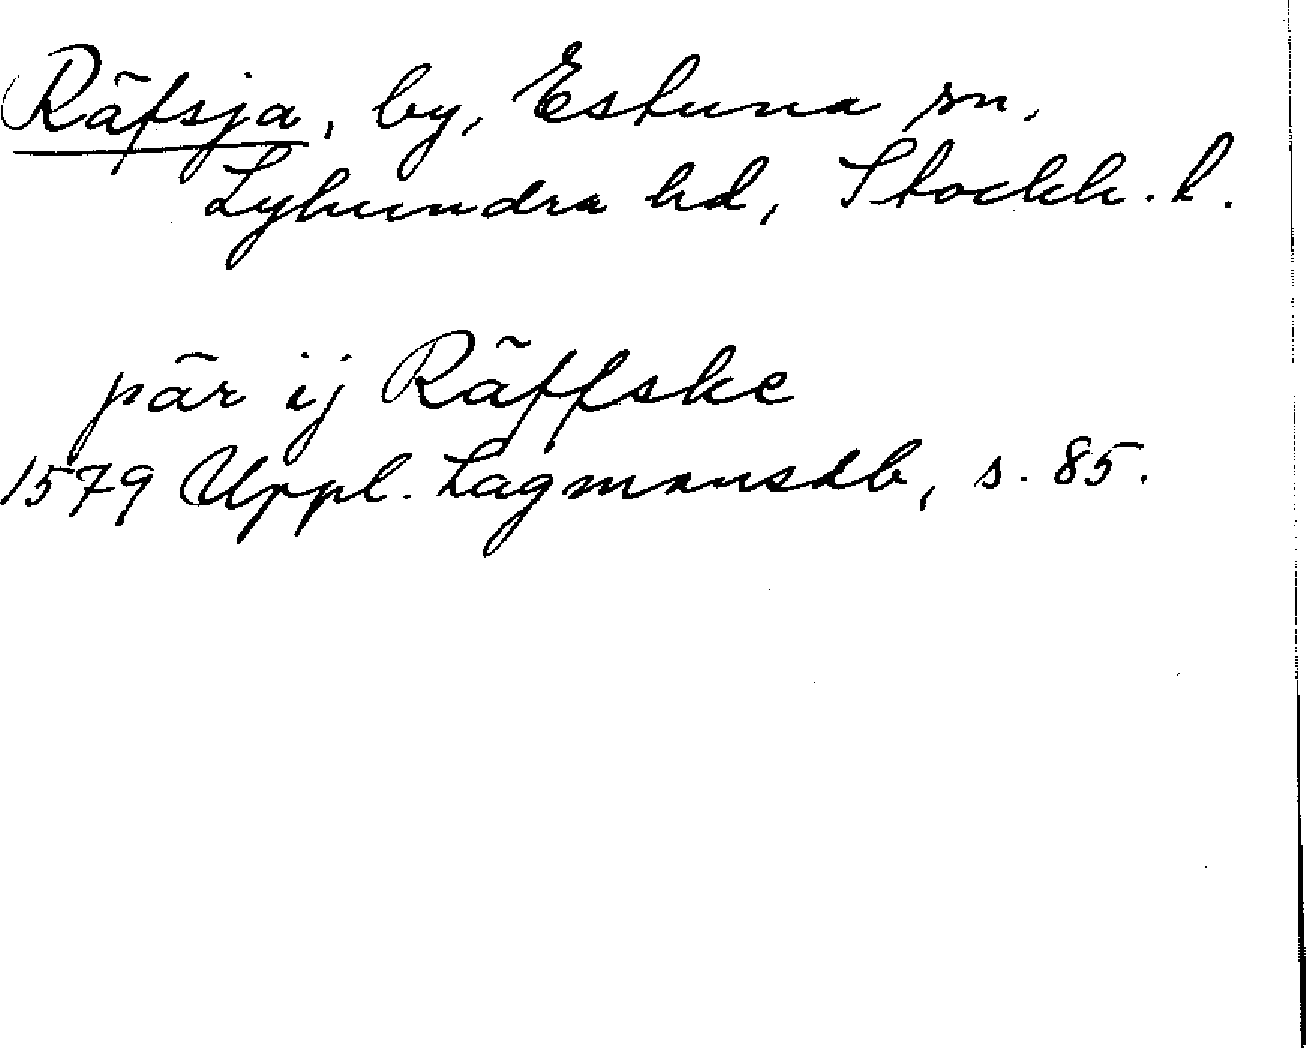 Räfsja, by, Estuna sn,
Lyhundra hd, Stockh. l.
pär ij Räffske
1579 Uppl. Lagmansdb, s. 85.